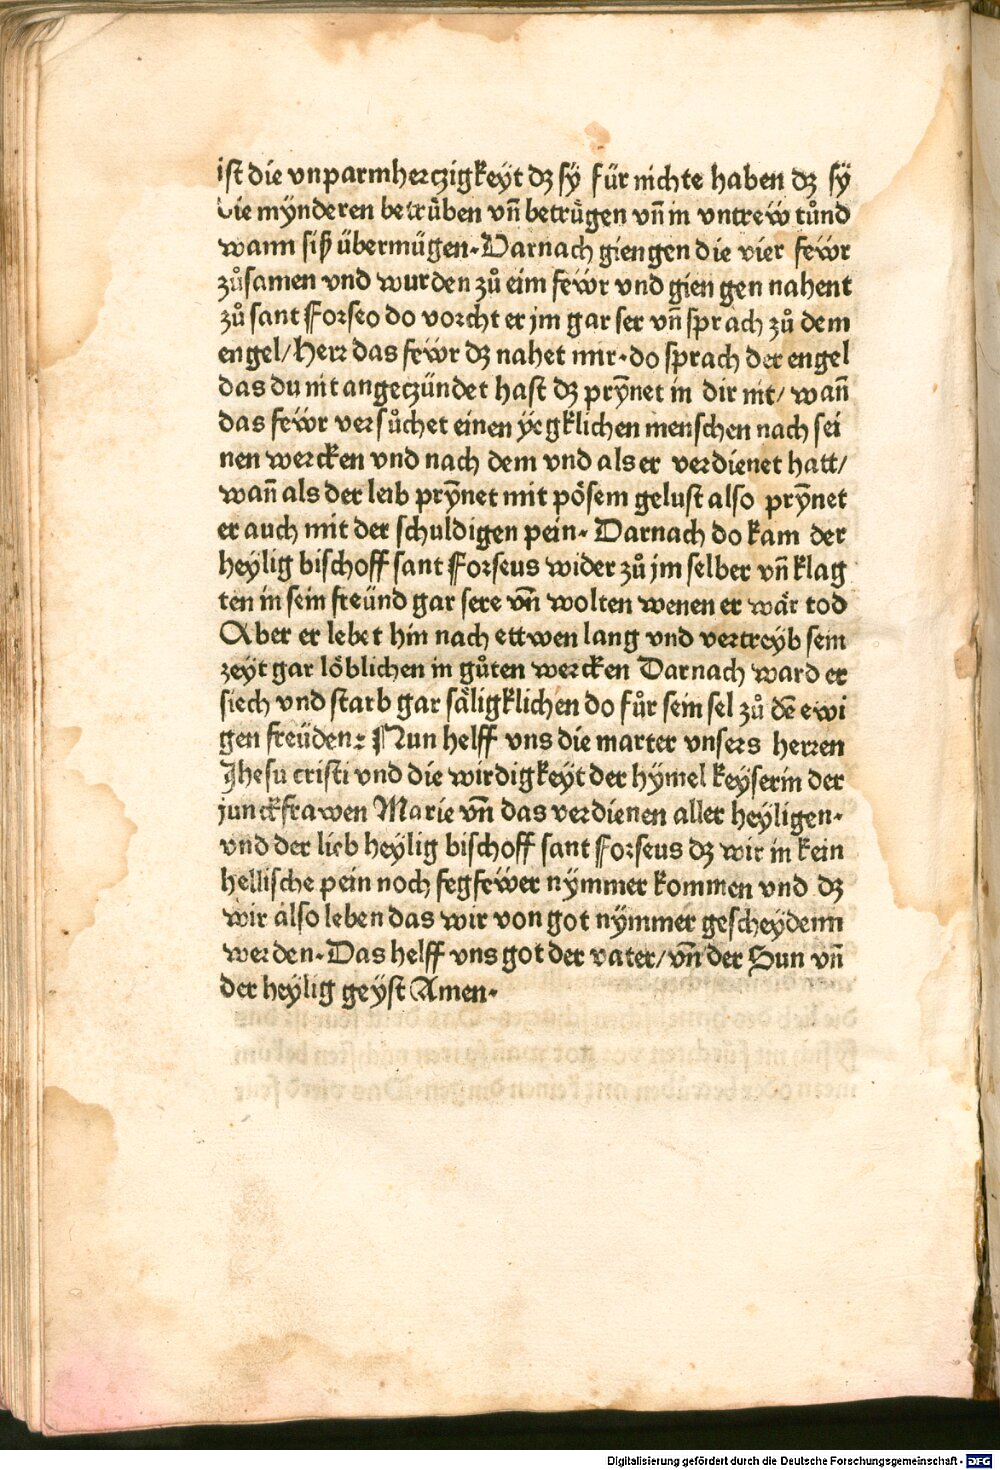 ist die vnparmherczigkeÿt dz sÿ für nichte haben dz sÿ
die mÿnderen betrüben vn̄ betrügen vn̄ in vntreẅ tůnd
wann siß übermügen. Darnach giengen die vier feẅr
zůsamen vnd wurden zů eim feẅr vnd giengen nahent
zů sant Forseo do vorcht er jm gar ser vn̄ sprach zů dem
engel/ Herr das feẅr dz nahet mir. do sprach der engel
das du nit angeczündet hast dz prÿn̄et in dir nit/ wan̄
das feẅr versůchet einen ÿegklichen menschen nach sei
nen wercken vnd nach dem vnd als er verdienet hatt/
wan̄ als der leib prÿn̄et mit pösem gelust also prÿn̄et
er auch mit der schuldigen pein. Darnach do kam der
heÿlig bischoff sant Forseus wider zů jm selber vn̄ klag
ten in sein freünd gar sere vn̄ wolten wenen er wär tod
Aber er lebet hin nach ettwen lang vnd vertreÿb sein
zeÿt gar löblichen in gůten wercken Darnach ward er
siech vnd starb gar säligklichen do fůr sein sel zů dē ewi
gen freüden: Nun helff vns die marter vnsers herren
Jhesu cristi vnd die wirdigkeÿt der hÿmel keÿserin der
junckfrawen Marie vn̄ das verdienen aller heÿligen.
vnd der lieb heÿlig bischoff sant Forseus dz wir in kein
hellische pein noch fegfeẅer nÿmmer kommen vnd dz
wir also leben das wir von got nÿmmer gescheÿdenn
werden. Das helff vns got der vater/ vn̄ der Sun vn̄
der heÿlig geÿst Amen.
Digitalisierung gefördert durch die Deutsche Forschungsgemeinschaft - DFG